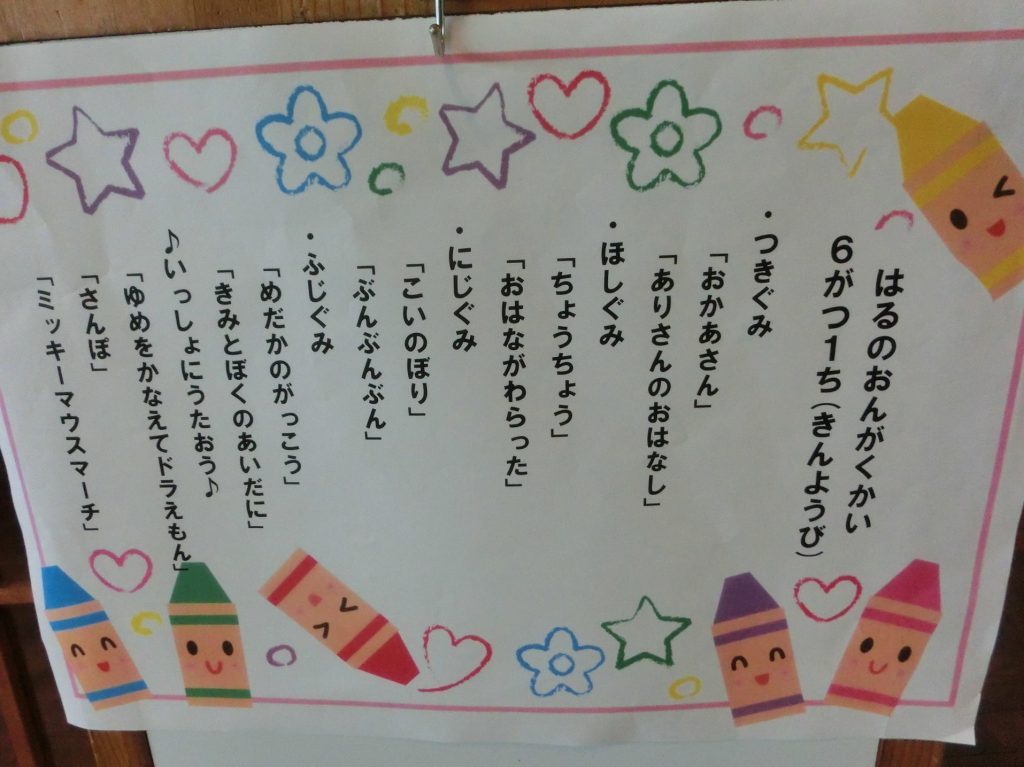 はるのおんがくかい
6がつ1ち(きんようび)
・つきぐみ
「おかあさん」
「ありさんのおはなし」
・ほしぐみ
「ちょうちょう」
「おはながわらった」
・にじぐみ
「こいのぼり」
「ぶんぶんぶん」
・ふじぐみ
「めだかのがっこう」
「きみとぼくのあいだに」
♪いっしょにうたおう♪
「ゆめをかなえてドラえもん」
「さんぽ」
「ミッキーマウスマーチ」